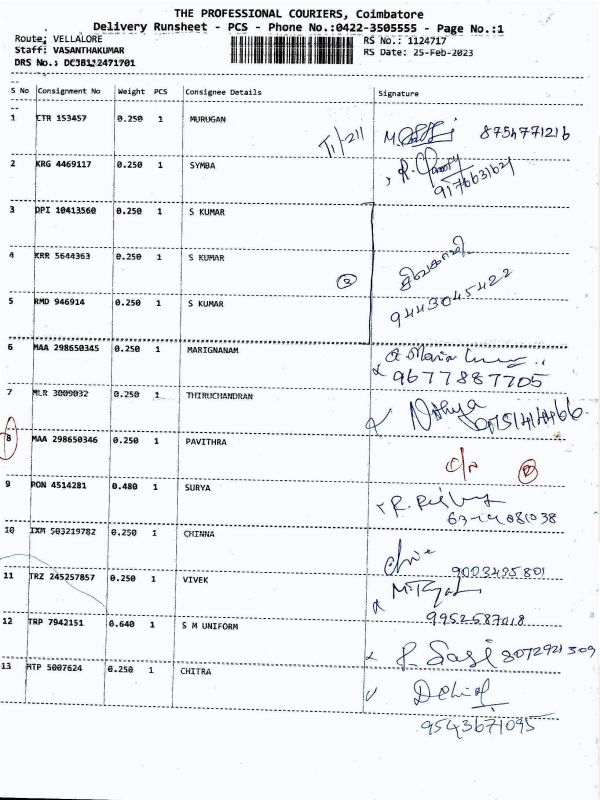 THE PROFESSIONAL COURIERS, Coimbatore
Delivery Runsheet - PCS - Phone No.:0422-3505555 - Page No.:1
Route: VELLALORE
RS No.: 1124717
Staff: VASANTHAKUMAR
RS Date: 25-Feb-2023
DRS No.: DCJB112471701
S No Consignment No Weight PCS Consignee Details Signature
1 CTR 153457 0.250 1 MURUGAN 8754771216
2 KRG 4469117 0.250 1 SYMBA 9176631621
3 DPI 10413560 0.250 1 S KUMAR
4 KRR 5644363 0.250 1 S KUMAR
5 RMD 946914 0.250 1 S KUMAR 9443045422
6 MAA 298650345 0.250 1 MARIGNANAM 9677887705
7 MLR 3009032 0.250 1 THIRUCHANDRAN
8 MAA 298650346 0.250 1 PAVITHRA
9 PON 4514281 0.480 1 SURYA
10 IXM 503219782 0.250 1 CHINNA 9003495801
11 TRZ 245257857 0.250 1 VIVEK 9952587018
12 TRP 7942151 0.640 1 S M UNIFORM P. Sasi 8072921309
13 MTP 5007624 0.250 1 CHITRA 9543671095